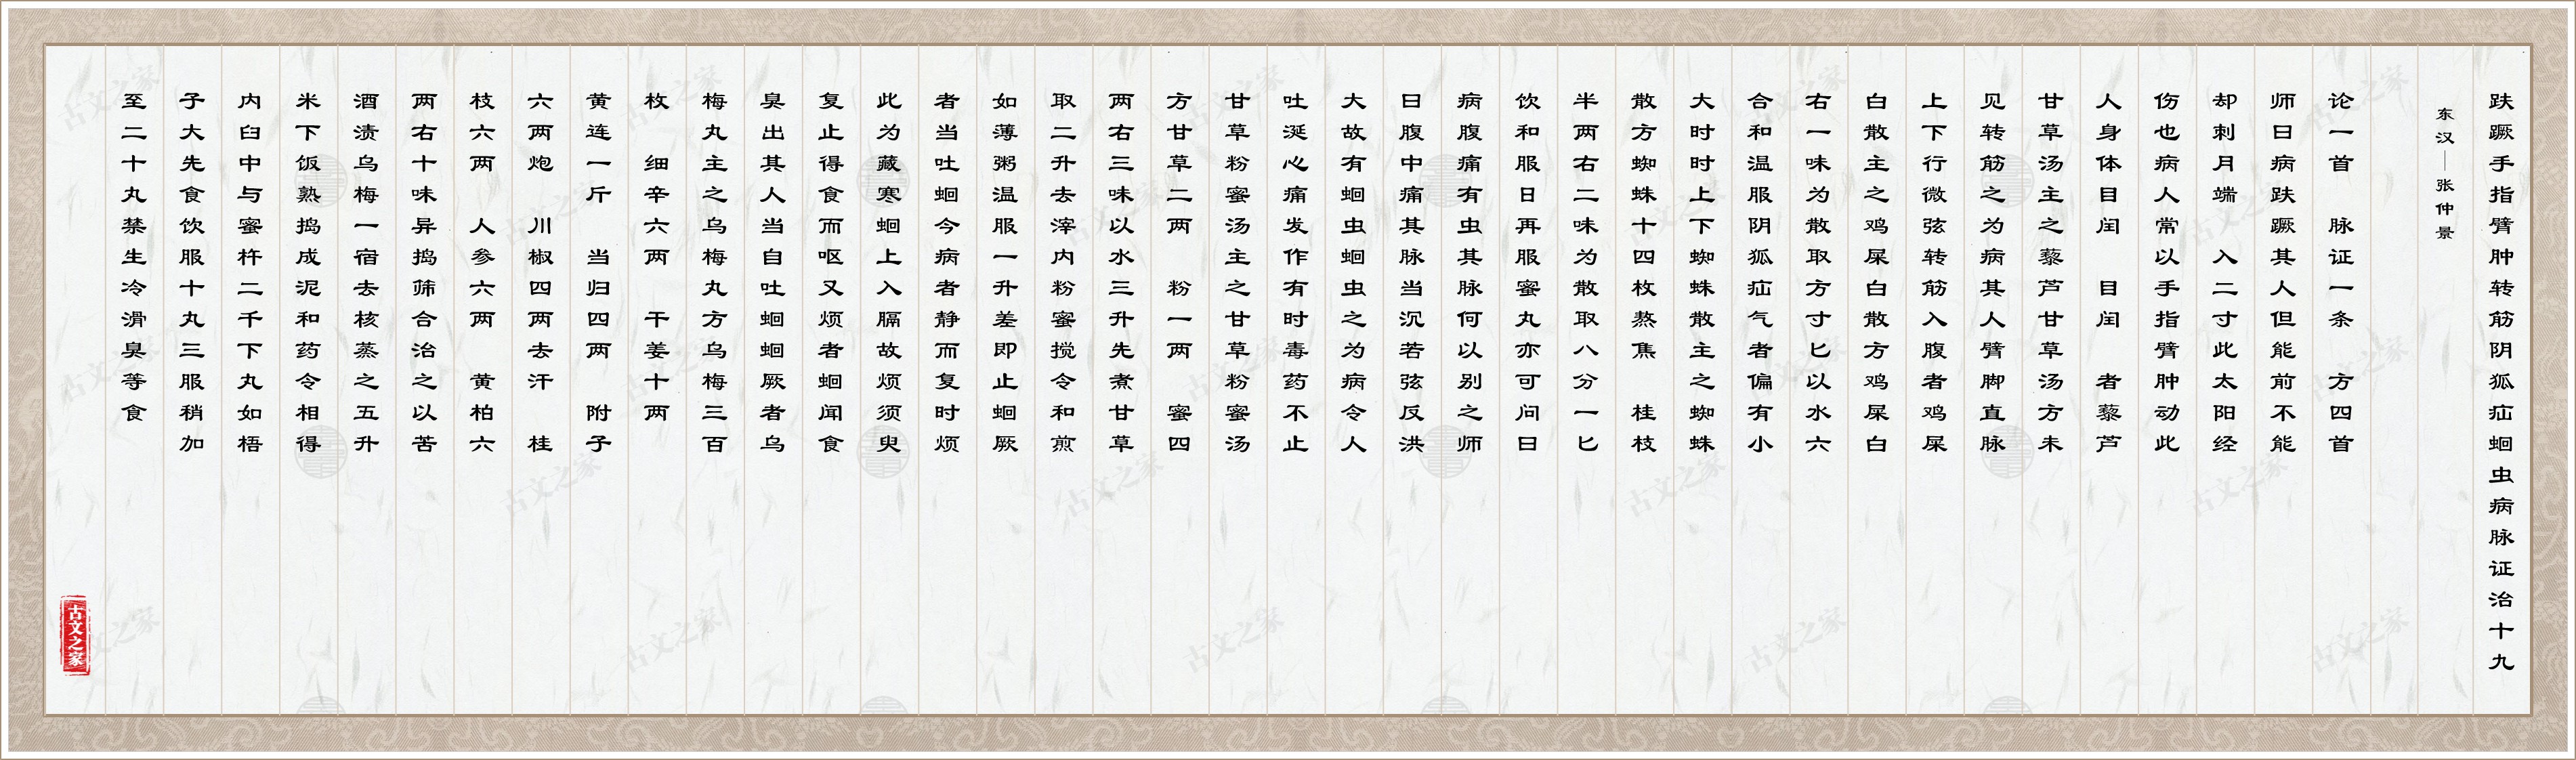 趺蹶手指臂肿转筋阴狐疝蛔虫病脉证治十九
东汉—张仲景
论一首 脉证一条 方四首
师曰病趺蹶其人但能前不能
却刺月端 入二寸此太阳经
伤也病人常以手指臂肿动此
人身体目闰 目闰 者藜芦
甘草汤主之藜芦甘草汤方未
见转筋之为病其人臂脚直脉
上下行微弦转筋入腹者鸡屎
白散主之鸡屎白散方鸡屎白
右一味为散取方寸匕以水六
合和温服阴狐疝气者偏有小
大时时上下蜘蛛散主之蜘蛛
散方蜘蛛十四枚熬焦 桂枝
半两右二味为散取八分一匕
饮和服日再服蜜丸亦可问曰
病腹痛有虫其脉何以别之师
曰腹中痛其脉当沉若弦反洪
大故有蛔虫蛔虫之为病令人
吐涎心痛发作有时毒药不止
甘草粉蜜汤主之甘草粉蜜汤
方甘草二两 粉一两 蜜四
两右三味以水三升先煮甘草
取二升去滓内粉蜜搅令和煎
如薄粥温服一升差即止蛔厥
者当吐蛔今病者静而复时烦
此为藏寒蛔上入膈故烦须臾
复止得食而呕又烦者蛔闻食
臭出其人当自吐蛔蛔厥者乌
梅丸主之乌梅丸方乌梅三百
枚 细辛六两 干姜十两
黄连一斤 当归四两 附子
六两炮 川椒四两去汗 桂
枝六两 人参六两 黄柏六
两右十味异捣筛合治之以苦
酒渍乌梅一宿去核蒸之五升
米下饭熟捣成泥和药令相得
内臼中与蜜杵二千下丸如梧
子大先食饮服十丸三服稍加
至二十丸禁生冷滑臭等食
古文之家